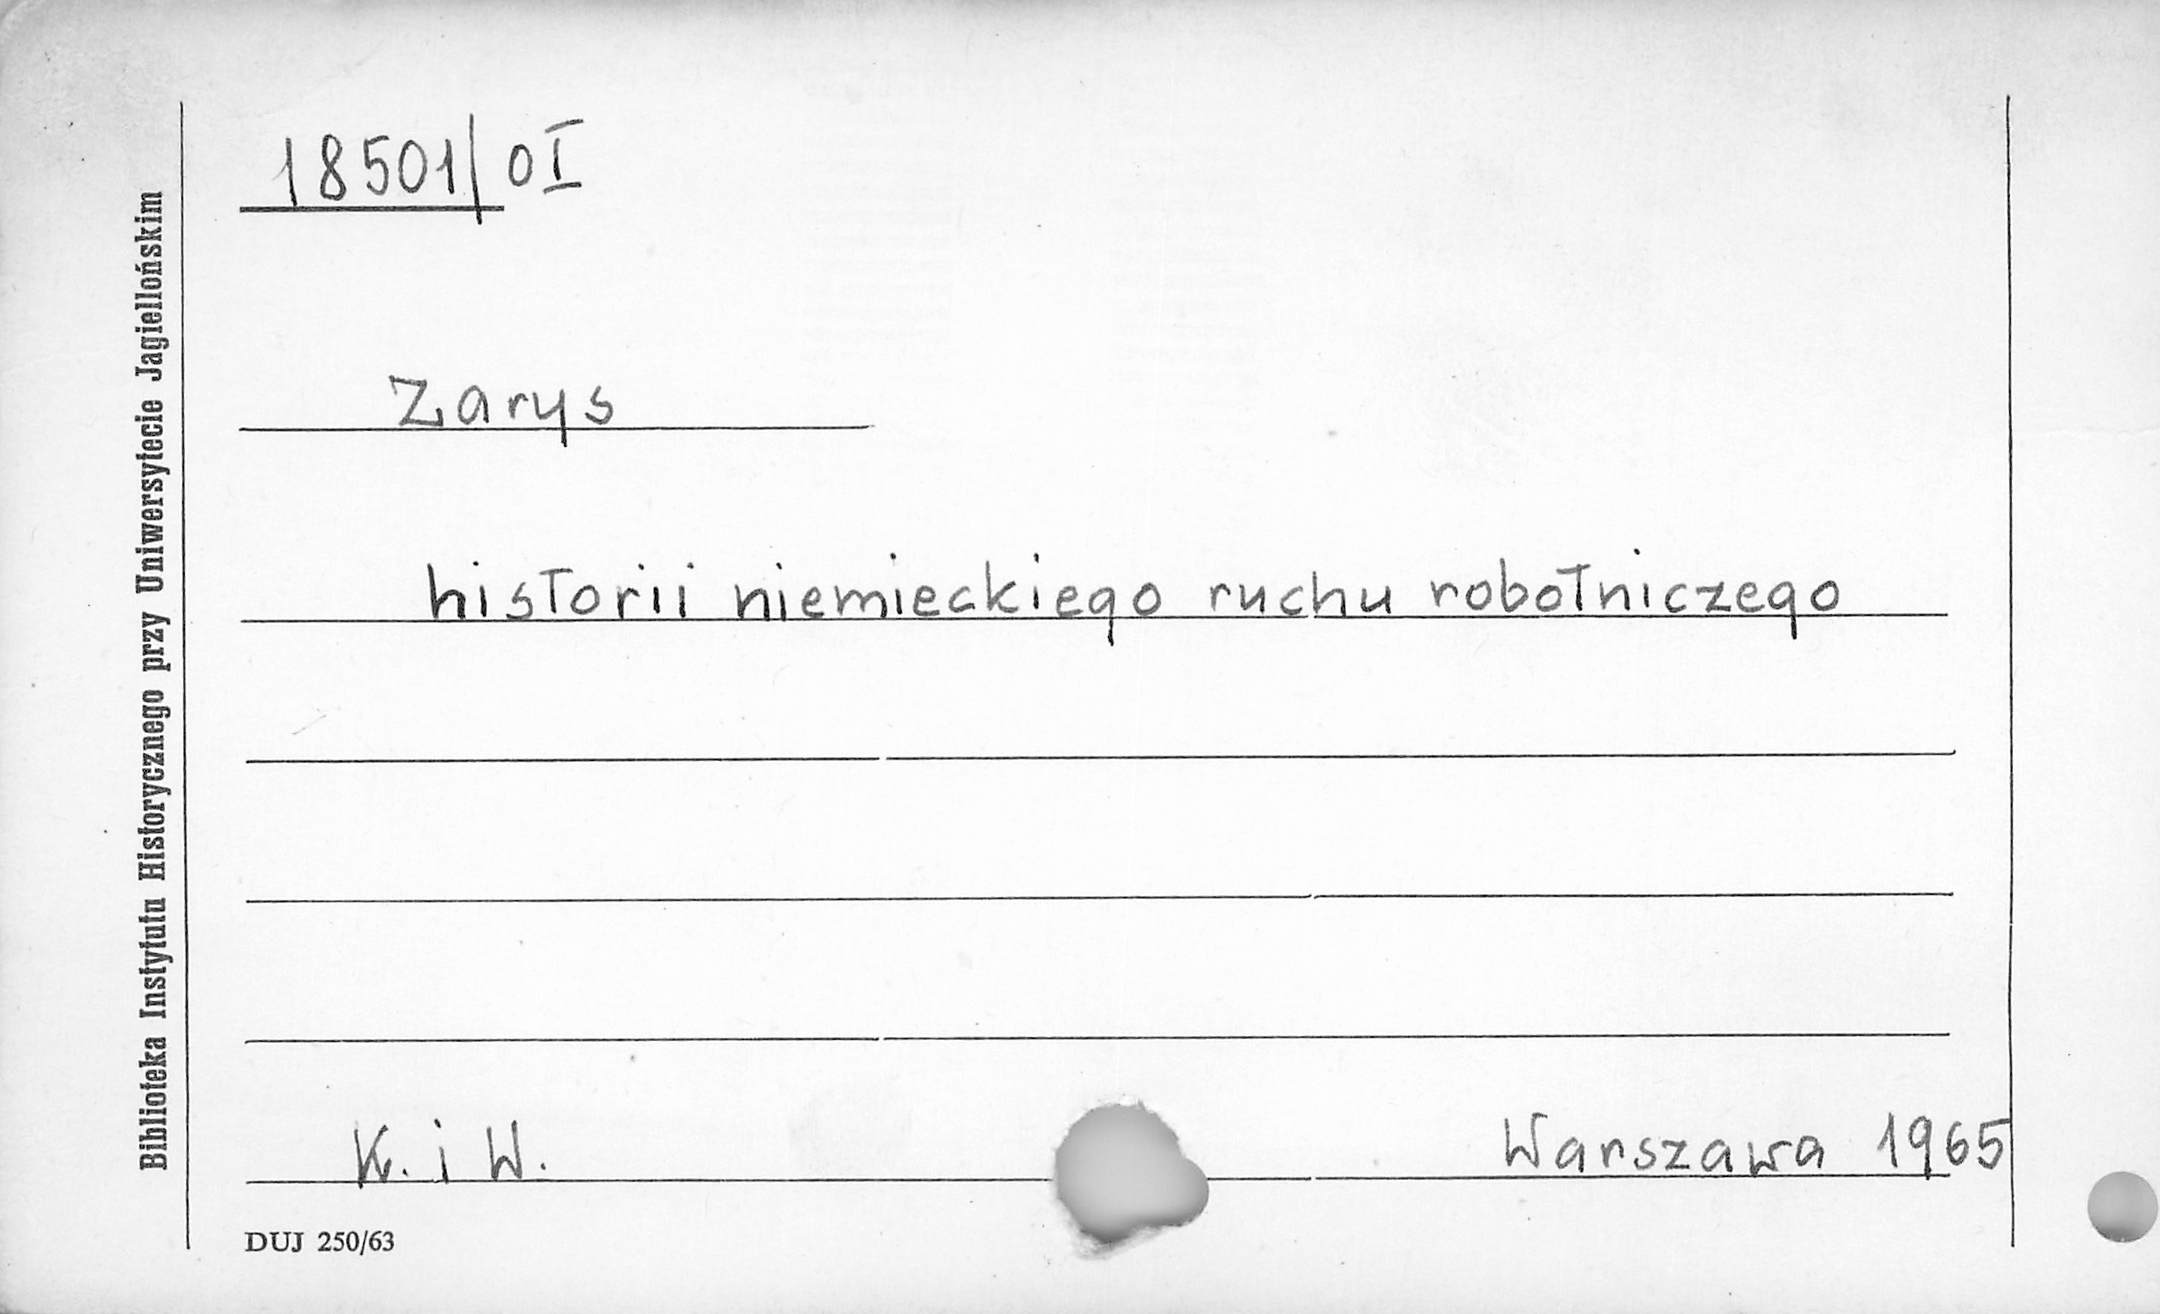 18501/ OI
Zarys
historii niemieckiego ruchu robotniczego
K. i W. Warszawa 1965
DUJ 250/63
Biblioteka Instytutu Historycznego przy Uniwersytecie Jagiellońskim